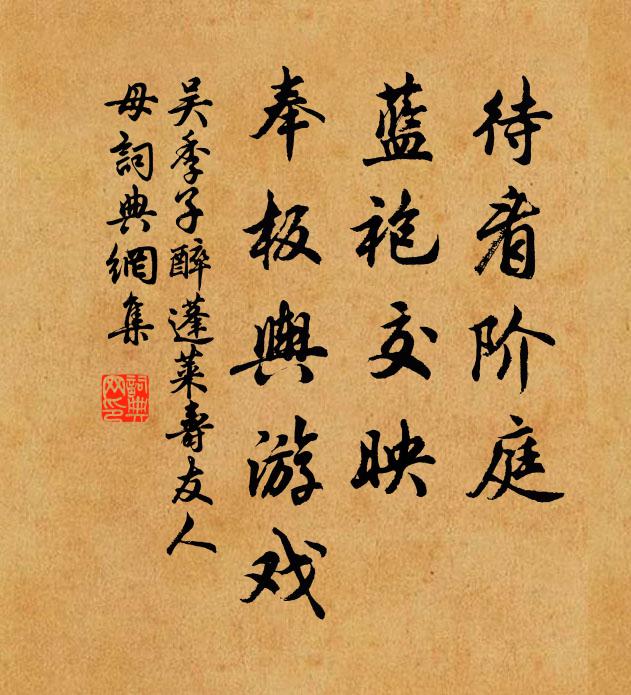 待看阶庭
蓝袍交映
奉板舆游戏
吴季子醉蓬莱寿友人
母词典網集
詞典網印